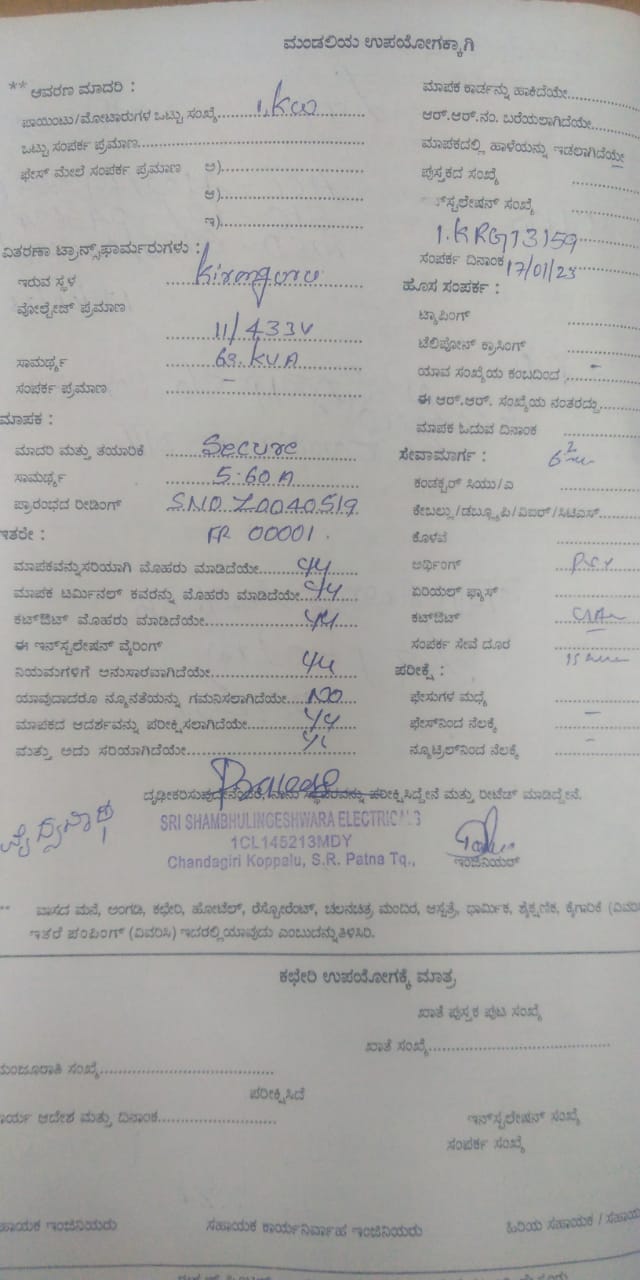 ಮಂಡಲಿಯ ಉಪಯೋಗಕ್ಕಾಗಿ
** ಆವರಣ ಮಾದರಿ :
ಪಾಯಿಂಟು/ಮೋಟಾರುಗಳ ಒಟ್ಟು ಸಂಖ್ಯೆ 1.KW
ಒಟ್ಟು ಸಂಪರ್ಕ ಪ್ರಮಾಣ
ಫೇಸ್ ಮೇಲೆ ಸಂಪರ್ಕ ಪ್ರಮಾಣ ಅ)
ಆ)
ಇ)
ವಿತರಣಾ ಟ್ರಾನ್ಸ್‌ಫಾರ್ಮರುಗಳು :
ಇರುವ ಸ್ಥಳ Kiranguru
ವೋಲ್ಟೇಜ್ ಪ್ರಮಾಣ
11/433V
ಸಾಮರ್ಥ್ಯ 63.KVA
ಸಂಪರ್ಕ ಪ್ರಮಾಣ –
ಮಾಪಕ :
ಮಾದರಿ ಮತ್ತು ತಯಾರಿಕೆ Secure
ಸಾಮರ್ಥ್ಯ 5-60A
ಪ್ರಾರಂಭದ ರೀಡಿಂಗ್ SNO Z0040519
ಇತರೇ : FR 00001
ಮಾಪಕವನ್ನು ಸರಿಯಾಗಿ ಮೊಹರು ಮಾಡಿದೆಯೇ
ಮಾಪಕ ಟರ್ಮಿನಲ್ ಕವರನ್ನು ಮೊಹರು ಮಾಡಿದೆಯೇ
ಕಟ್‌ಔಟ್ ಮೊಹರು ಮಾಡಿದೆಯೇ
ಈ ಇನ್‌ಸ್ಟಲೇಷನ್ ವೈರಿಂಗ್
ನಿಯಮಗಳಿಗೆ ಅನುಸಾರವಾಗಿದೆಯೇ
ಯಾವುದಾದರೂ ನ್ಯೂನತೆಯನ್ನು ಗಮನಿಸಲಾಗಿದೆಯೇ NO
ಮಾಪಕದ ಆದರ್ಶವನ್ನು ಪರೀಕ್ಷಿಸಲಾಗಿದೆಯೇ
ಮತ್ತು ಅದು ಸರಿಯಾಗಿದೆಯೇ
ಮಾಪಕ ಕಾರ್ಡನ್ನು ಹಾಕಿದೆಯೇ
ಆರ್.ಆರ್.ನಂ. ಬರೆಯಲಾಗಿದೆಯೇ
ಮಾಪಕದಲ್ಲಿ ಹಾಳೆಯನ್ನು ಇಡಲಾಗಿದೆಯೇ
ಪುಸ್ತಕದ ಸಂಖ್ಯೆ
ಸ್ಟಲೇಷನ್ ಸಂಖ್ಯೆ
1.KRG13159
ಸಂಪರ್ಕ ದಿನಾಂಕ 17/01/23
ಹೊಸ ಸಂಪರ್ಕ :
ಟ್ಯಾಪಿಂಗ್
ಟೆಲಿಫೋನ್ ಕ್ರಾಸಿಂಗ್
ಯಾವ ಸಂಖ್ಯೆಯ ಕಂಬದಿಂದ –
ಈ ಆರ್.ಆರ್. ಸಂಖ್ಯೆಯ ನಂತರದ್ದು
ಮಾಪಕ ಓದುವ ದಿನಾಂಕ
ಸೇವಾಮಾರ್ಗ :
ಕಂಡಕ್ಟರ್ ಸಿಯು/ಎ
ಕೇಬಲ್ಲು/ಡಬ್ಲ್ಯೂಪಿ/ವಿಐಆರ್/ಸಿಟಿಎಸ್
ಕೊಳವೆ
ಅರ್ಥಿಂಗ್
ಏರಿಯಲ್ ಫ್ಯೂಸ್
ಕಟ್‌ಔಟ್
ಸಂಪರ್ಕ ಸೇವೆ ದೂರ
ಪರೀಕ್ಷೆ :
ಫೇಸುಗಳ ಮಧ್ಯೆ –
ಫೇಸ್‌ನಿಂದ ನೆಲಕ್ಕೆ –
ನ್ಯೂಟ್ರಲ್‌ನಿಂದ ನೆಲಕ್ಕೆ
ದೃಢೀಕರಿಸುವುದೇನೆಂದರೆ, ನಾನು ಸ್ಥಾವರವನ್ನು ಪರೀಕ್ಷಿಸಿದ್ದೇನೆ ಮತ್ತು ರೀಟೆಡ್ ಮಾಡಿದ್ದೇನೆ.
SRI SHAMBHULINGESHWARA ELECTRICALS
1CL145213MDY
Chandagiri Koppalu, S.R. Patna Tq.,
ಇಂಜಿನಿಯರ್
** ವಾಸದ ಮನೆ, ಅಂಗಡಿ, ಕಛೇರಿ, ಹೋಟೆಲ್, ರೆಸ್ಟೋರೆಂಟ್, ಚಲನಚಿತ್ರ ಮಂದಿರ, ಆಸ್ಪತ್ರೆ, ಧಾರ್ಮಿಕ, ಶೈಕ್ಷಣಿಕ, ಕೈಗಾರಿಕೆ
ಇತರೆ ಪಂಪಿಂಗ್ (ವಿವರಿಸಿ) ಇದರಲ್ಲಿ ಯಾವುದು ಎಂಬುದನ್ನು ತಿಳಿಸಿರಿ.
ಕಛೇರಿ ಉಪಯೋಗಕ್ಕೆ ಮಾತ್ರ
ಖಾತೆ ಪುಸ್ತಕ ಪುಟ ಸಂಖ್ಯೆ
ಖಾತೆ ಸಂಖ್ಯೆ
ಮಂಜೂರಾತಿ ಸಂಖ್ಯೆ
ಪರೀಕ್ಷಿಸಿದೆ
ಕಾರ್ಯ ಆದೇಶ ಮತ್ತು ದಿನಾಂಕ
ಇನ್‌ಸ್ಟಲೇಷನ್ ಸಂಖ್ಯೆ
ಸಂಪರ್ಕ ಸಂಖ್ಯೆ
ಸಹಾಯಕ ಇಂಜಿನಿಯರು ಸಹಾಯಕ ಕಾರ್ಯನಿರ್ವಾಹ ಇಂಜಿನಿಯರು ಹಿರಿಯ ಸಹಾಯಕ /